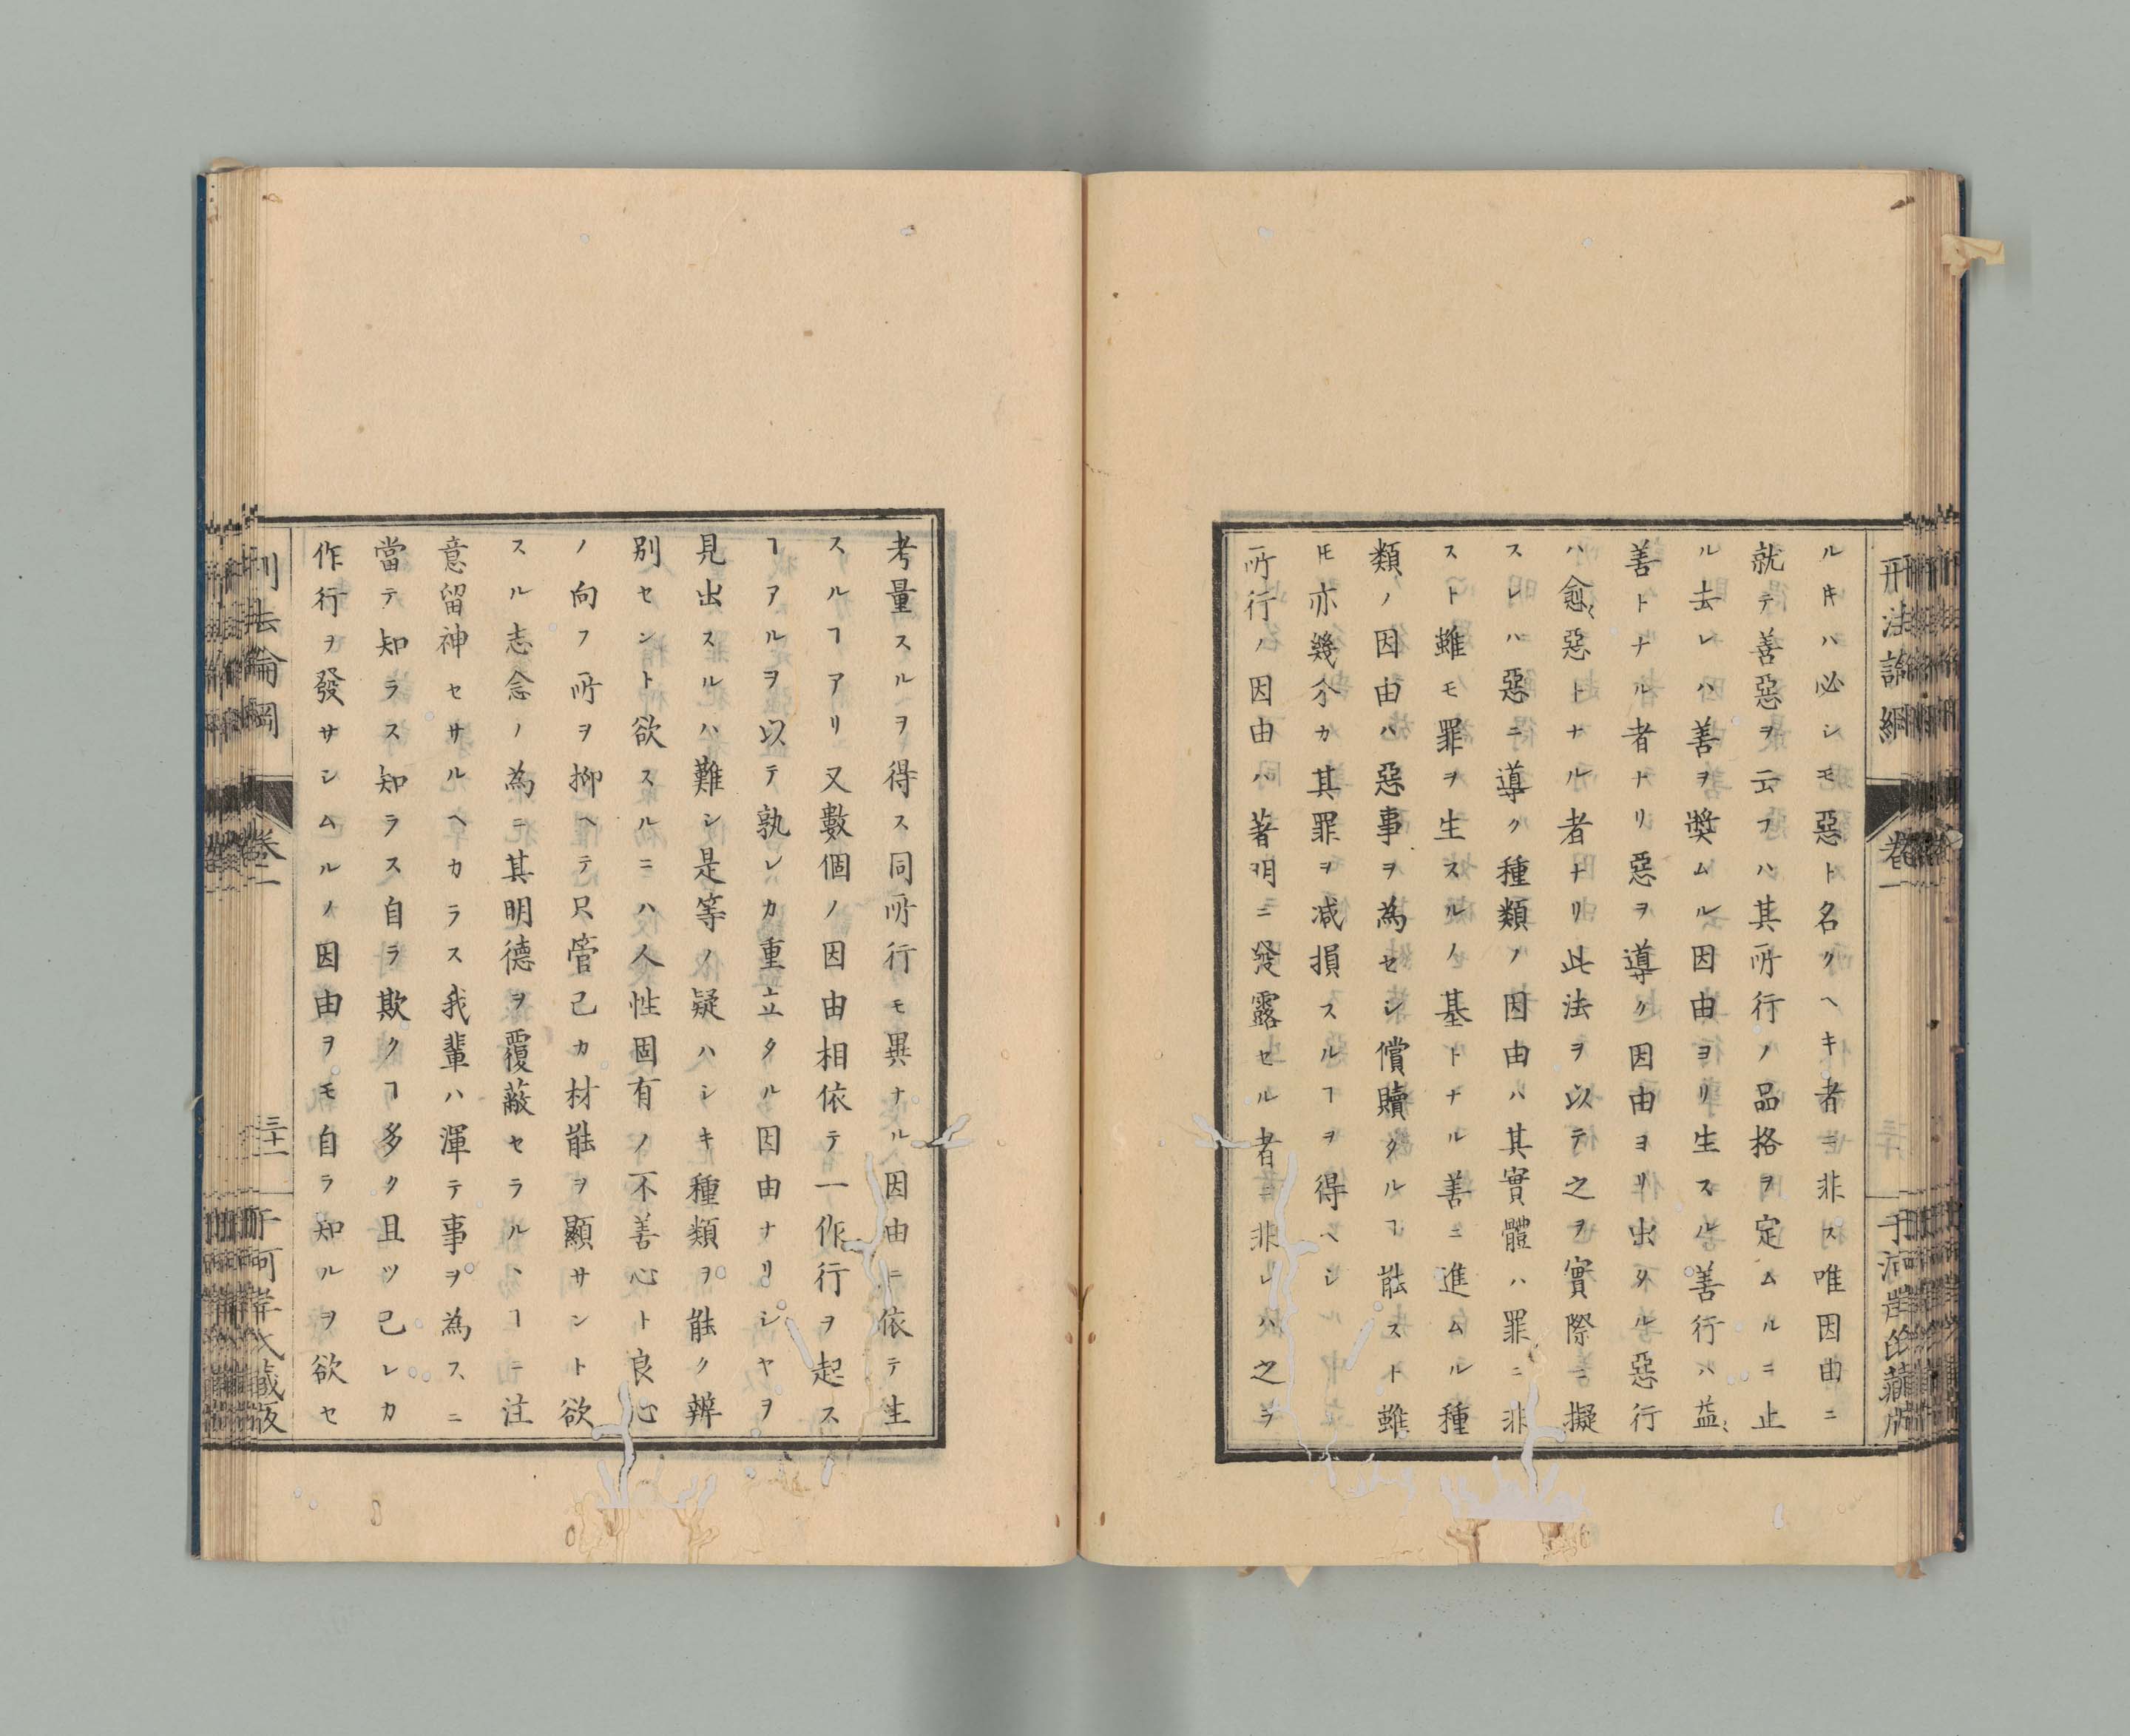 刑法論綱
卷一
于河岸氏藏版
ル𪜈ハ必シモ惡ト名クヘキ者ニ非ス唯因由ニ
就テ善惡ヲ云フハ其所行ノ品格ヲ定ムルニ止
ル去レハ善ヲ奬ムル因由ヨリ生スル善行ハ益〻
善トナル者ナリ惡ヲ導ク因由ヨリ出タル惡行
ハ愈〻惡トナル者ナリ此法ヲ以テ之ヲ實際ニ擬
スレハ惡ニ導ク種類ノ因由ハ其實體ハ罪ニ非
スト雖モ罪ヲ生スルノ基トナル善ニ進ムル種
類ノ因由ハ惡事ヲ為セシ償贖タルヿ能スト雖
𪜈亦幾分カ其罪ヲ減損スルヿヲ得ヘシ
所行ノ因由ハ著明ニ發露セル者ニ非レハ之ヲ
考量スルヲ得ス同所行モ異ナル因由ニ依テ生
スルヿアリ又數個ノ因由相依テ一作行ヲ起ス
ヿアルヲ以テ孰レカ重立タル因由ナリシヤヲ
見出スルハ難シ是等ノ疑ハシキ種類ヲ能ク辨
別セント欲スルニハ人性固有ノ不善心ト良心
ノ向フ所ヲ抑ヘテ只管己カ材能ヲ顯サント欲
スル志念ノ為ニ其明德ヲ覆蔽セラルヽヿニ注
意留神セサルヘカラス我輩ハ渾テ事ヲ為スニ
當テ知ラス知ラス自ラ欺クヿ多ク且ツ己レカ
作行ヲ發サシムルノ因由ヲモ自ラ知ルヲ欲セ
刑法論綱
卷一
三十一
于河岸氏藏版